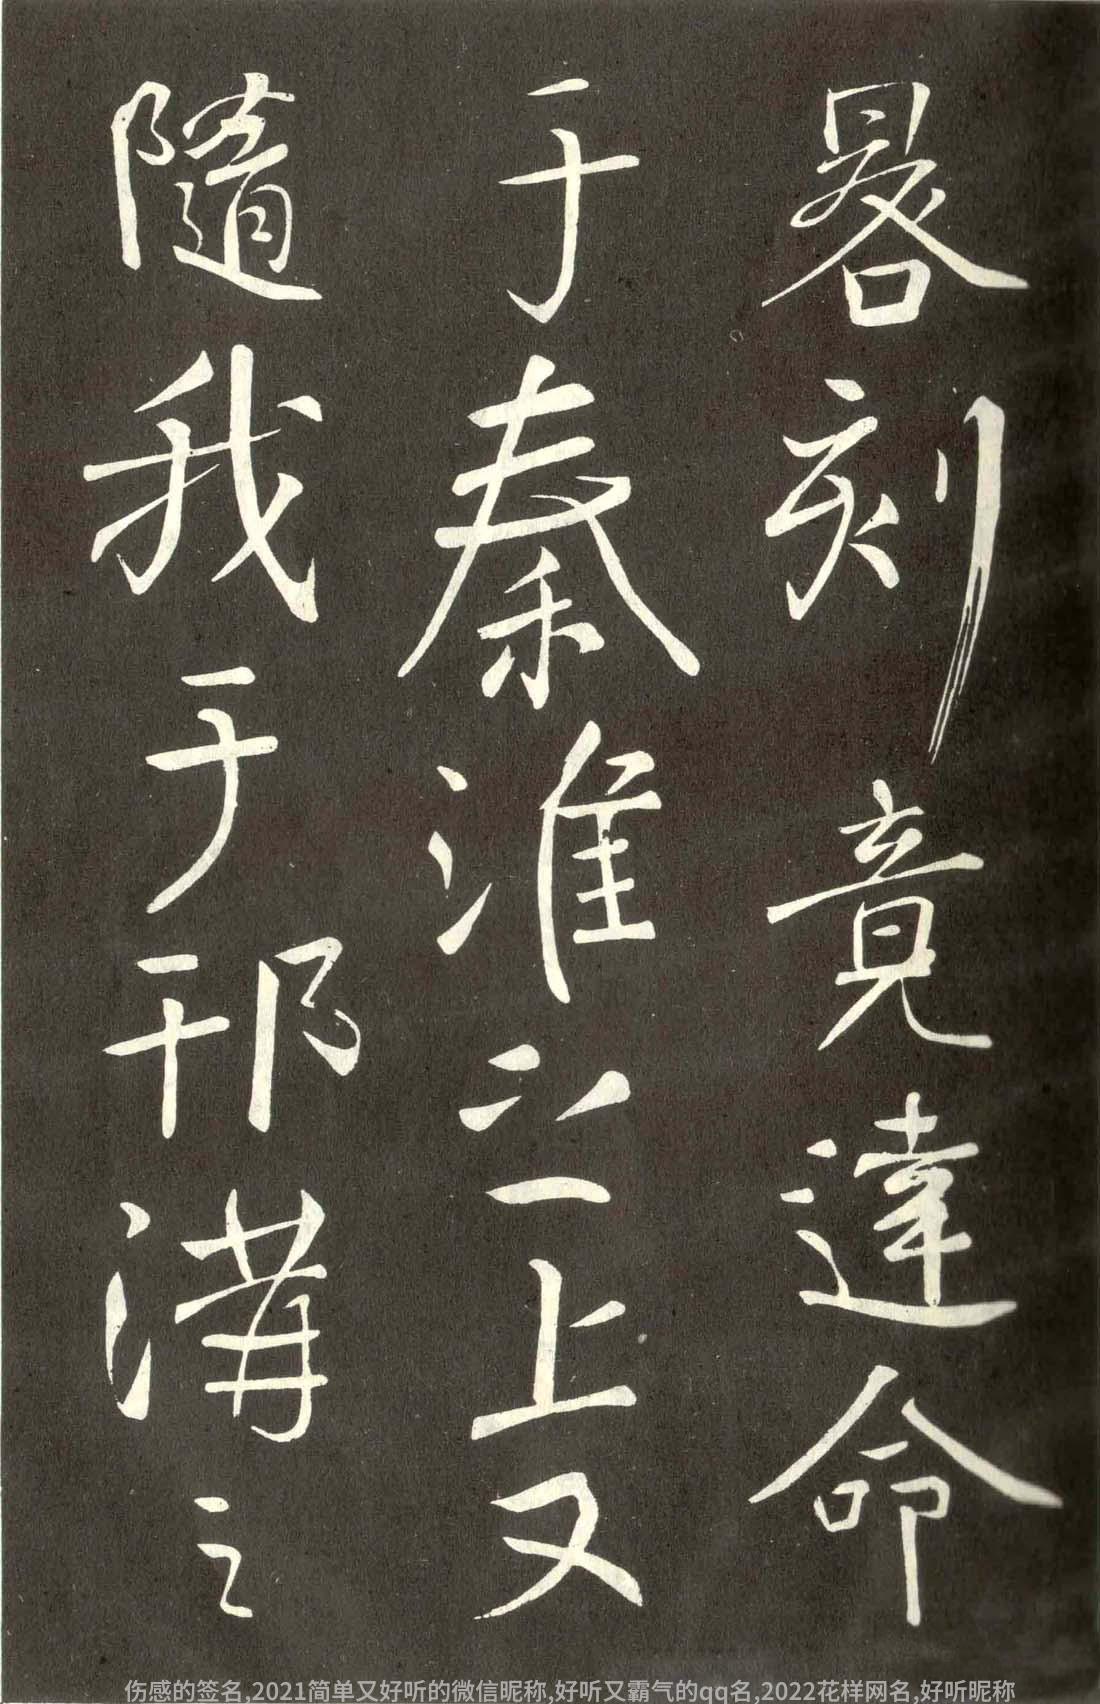 晷刻竟達命
于秦淮之上又
隨我于邗溝之
伤感的签名,2021简单又好听的微信昵称,好听又霸气的qq名,2022花样网名,好听昵称